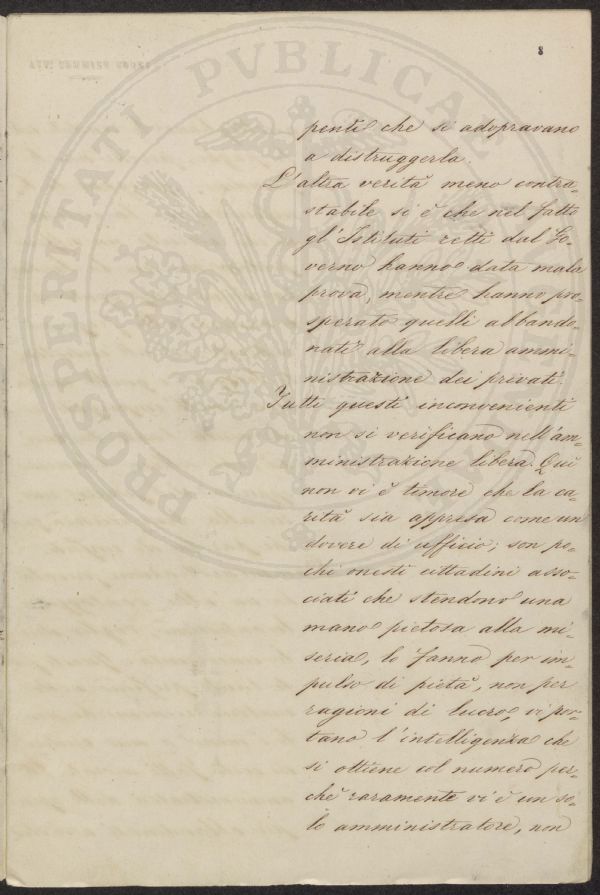 8
PROSPERITATI PVBLICAE
penti che si adopravano
a distruggerla.
L'altra verità meno contra-
stabile si è che nel fatto
gl'Istituti retti dal Go-
verno hanno data mala
prova, mentre hanno pro-
sperato quelli abbando-
nati alla libera ammi-
nistrazione dei privati.
Tutti questi inconvenienti
non si verificano nell'am-
ministrazione libera. Qui
non vi è timore che la ca-
rità sia appresa come un
dovere di ufficio; son po-
chi onesti cittadini asso-
ciati che stendono una
mano pietosa alla mi-
seria, lo fanno per im-
pulso di pietà, non per
ragioni di lucro, vi por-
tano l'intelligenza che
si ottiene col numero per-
chè raramente vi è un so-
lo amministratore, non